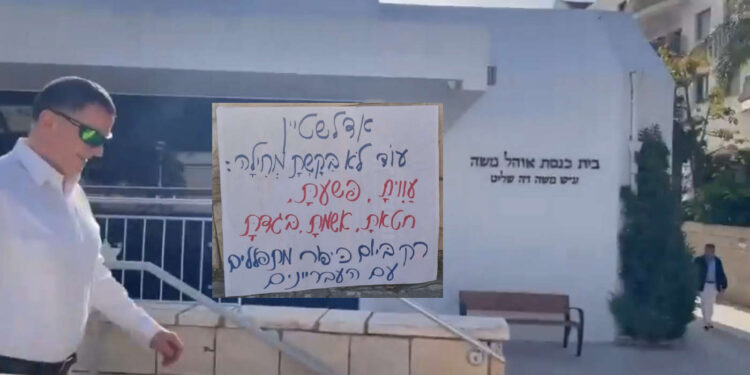 אדלשטיין
עוֹד לֹא בִּקַּשְׁתָּ מְחִילָה:
עָוִיתָ, פשעתָ,
חטאתָ, אשמתָ, בגדתָ
רק ביום כיפור מתפללים
עם העבריינים
בית כנסת אוהל משה
ע״ש משה דה שליט